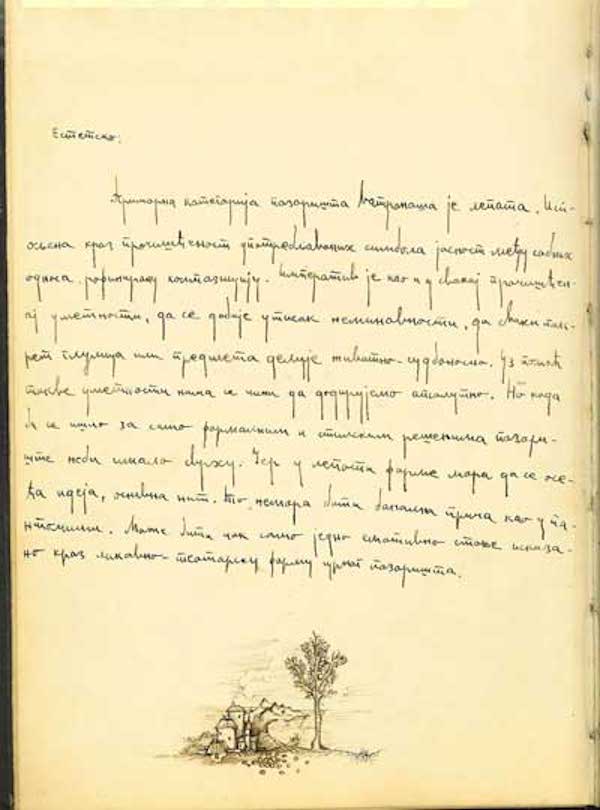 Естетско:
Примарна категорија позоришта је лепота. Исп-
ољена кроз прочишћеност употребљаваних симбола јасност међусобних
односа, рафинирану композицију. Императив је као и у свакој прочишћен-
ој уметности, да се добије утисак неминовности, да сваки пок-
рет глумца или предмета делује животно-судбоносно. Уз помоћ
такве уметности нама се чини да додирујемо апсолутно. Но када
би се ишло за само формалним и стилским решењима позори-
ште неби имало сврху. Јер у лепоти форме мора да се осе-
ћа идеја, основна нит. То, немора бити банална прича као у па-
нтомими. Може бити чак само једно емотивно стање исказа-
но кроз ликовно-театарску форму црног позоришта.